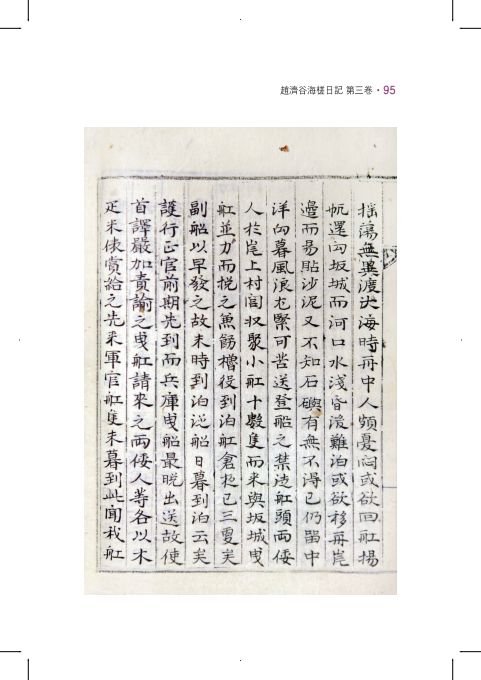 趙濟谷海槎日記 第三卷 · 95
搖蕩無異渡大海時舟中人頗憂悶或欲回舡揚
帆還向坂城而河口水淺昏後難泊或欲移舟崖
邊而易貼沙泥又不知石礖有無不得已仍留中
洋向暮風浪尤緊可苦送登船之禁徒舡頭兩倭
人於崖上村閭収聚小舡十數隻而来與坂城曳
舡並力而挽之魚舫櫓役到泊舡倉夜已三更矣
副船以早發之故未時到泊從船日暮到泊云矣
護行正官前期先到而兵庫曳船最晩出送故使
首譯嚴加責諭之曳舡請来之兩倭人等各以木
疋米俵賞給之先来軍官舡隻未暮到此聞我舡